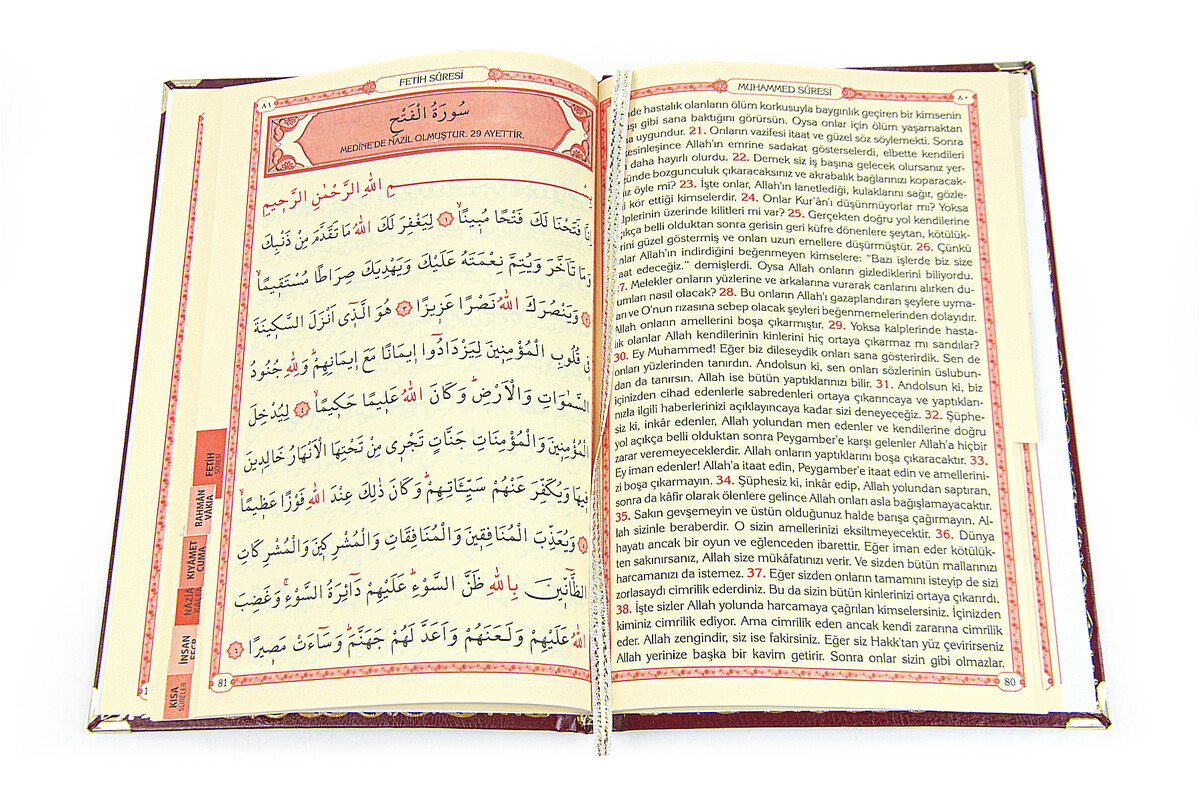 MUHAMMED SÛRESİ
٨٠
hastalık olanların ölüm korkusuyla baygınlık geçiren bir kimsenin
gibi sana baktığını görürsün. Oysa onlar için ölüm yaşamaktan
uygundur. 21. Onların vazifesi itaat ve güzel söz söylemekti. Sonra
kesinleşince Allah'ın emrine sadakat gösterselerdi, elbette kendileri
daha hayırlı olurdu. 22. Demek siz iş başına gelecek olursanız yer-
yüzünde bozgunculuk çıkaracaksınız ve akrabalık bağlarınızı koparacak-
öyle mi? 23. İşte onlar, Allah'ın lanetlediği, kulaklarını sağır, gözle-
kör ettiği kimselerdir. 24. Onlar Kur'ân'ı düşünmüyorlar mı? Yoksa
kalplerinin üzerinde kilitleri mi var? 25. Gerçekten doğru yol kendilerine
açıkça belli olduktan sonra gerisin geri küfre dönenlere şeytan, kötülük-
lerini güzel göstermiş ve onları uzun emellere düşürmüştür. 26. Çünkü
onlar Allah'ın indirdiğini beğenmeyen kimselere: "Bazı işlerde biz size
itaat edeceğiz." demişlerdi. Oysa Allah onların gizlediklerini biliyordu.
27. Melekler onların yüzlerine ve arkalarına vurarak canlarını alırken du-
rumları nasıl olacak? 28. Bu onların Allah'ı gazaplandıran şeylere uyma-
ları ve O'nun rızasına sebep olacak şeyleri beğenmemelerinden dolayıdır.
Allah onların amellerini boşa çıkarmıştır. 29. Yoksa kalplerinde hasta-
lık olanlar Allah kendilerinin kinlerini hiç ortaya çıkarmaz mı sandılar?
30. Ey Muhammed! Eğer biz dileseydik onları sana gösterirdik. Sen de
onları yüzlerinden tanırdın. Andolsun ki, sen onları sözlerinin üslubun-
dan da tanırsın. Allah ise bütün yaptıklarınızı bilir. 31. Andolsun ki, biz
içinizden cihad edenlerle sabredenleri ortaya çıkarıncaya ve yaptıkları-
nızla ilgili haberlerinizi açıklayıncaya kadar sizi deneyeceğiz. 32. Şüphe-
siz ki, inkâr edenler, Allah yolundan men edenler ve kendilerine doğru
yol açıkça belli olduktan sonra Peygamber'e karşı gelenler Allah'a hiçbir
zarar veremeyeceklerdir. Allah onların yaptıklarını boşa çıkaracaktır. 33.
Ey iman edenler! Allah'a itaat edin, Peygamber'e itaat edin ve amellerini-
zi boşa çıkarmayın. 34. Şüphesiz ki, inkâr edip, Allah yolundan saptıran,
sonra da kâfir olarak ölenlere gelince Allah onları asla bağışlamayacaktır.
35. Sakın gevşemeyin ve üstün olduğunuz halde barışa çağırmayın. Al-
lah sizinle beraberdir. O sizin amellerinizi eksiltmeyecektir. 36. Dünya
hayatı ancak bir oyun ve eğlenceden ibarettir. Eğer iman eder kötülük-
ten sakınırsanız, Allah size mükâfatınızı verir. Ve sizden bütün mallarınızı
harcamanızı da istemez. 37. Eğer sizden onların tamamını isteyip de sizi
zorlasaydı cimrilik ederdiniz. Bu da sizin bütün kinlerinizi ortaya çıkarırdı.
38. İşte sizler Allah yolunda harcamaya çağrılan kimselersiniz. İçinizden
kiminiz cimrilik ediyor. Ama cimrilik eden ancak kendi zararına cimrilik
eder. Allah zengindir, siz ise fakirsiniz. Eğer siz Hakk'tan yüz çevirirseniz
Allah yerinize başka bir kavim getirir. Sonra onlar sizin gibi olmazlar.
80
FETİH SÛRESİ
٨١
سُورَةُ الْفَتْحِ
MEDİNE'DE NAZİL OLMUŞTUR. 29 AYETTİR.
بِسْمِ اللّٰهِ الرَّحْمٰنِ الرَّحٖيمِ
اِنَّا فَتَحْنَا لَكَ فَتْحًا مُبٖينًاۙ ﴿١﴾ لِيَغْفِرَ لَكَ اللّٰهُ مَا تَقَدَّمَ مِنْ ذَنْبِكَ
وَمَا تَاَخَّرَ وَيُتِمَّ نِعْمَتَهُ عَلَيْكَ وَيَهْدِيَكَ صِرَاطًا مُسْتَقٖيمًاۙ
﴿٢﴾ وَيَنْصُرَكَ اللّٰهُ نَصْرًا عَزٖيزًا ﴿٣﴾ هُوَ الَّذٖٓي اَنْزَلَ السَّكٖينَةَ
فٖي قُلُوبِ الْمُؤْمِنٖينَ لِيَزْدَادُٓوا اٖيمَانًا مَعَ اٖيمَانِهِمْؕ وَلِلّٰهِ جُنُودُ
السَّمٰوَاتِ وَالْاَرْضِؕ وَكَانَ اللّٰهُ عَلٖيمًا حَكٖيمًاۙ ﴿٤﴾ لِيُدْخِلَ
الْمُؤْمِنٖينَ وَالْمُؤْمِنَاتِ جَنَّاتٍ تَجْرٖي مِنْ تَحْتِهَا الْاَنْهَارُ خَالِدٖينَ
فٖيهَا وَيُكَفِّرَ عَنْهُمْ سَيِّـَٔاتِهِمْؕ وَكَانَ ذٰلِكَ عِنْدَ اللّٰهِ فَوْزًا عَظٖيمًاۙ
﴿٥﴾ وَيُعَذِّبَ الْمُنَافِقٖينَ وَالْمُنَافِقَاتِ وَالْمُشْرِكٖينَ وَالْمُشْرِكَاتِ
الظَّٓانّٖينَ بِاللّٰهِ ظَنَّ السَّوْءِؕ عَلَيْهِمْ دَٓائِرَةُ السَّوْءِۚ وَغَضِبَ
اللّٰهُ عَلَيْهِمْ وَلَعَنَهُمْ وَاَعَدَّ لَهُمْ جَهَنَّمَؕ وَسَٓاءَتْ مَصٖيرًا ﴿٦﴾
81
FETİH
SÛRESİ
RAHMÂN
VÂKIA
KIYÂMET
CUMA
NAZİA
İNSAN
KISA
SÛRELER